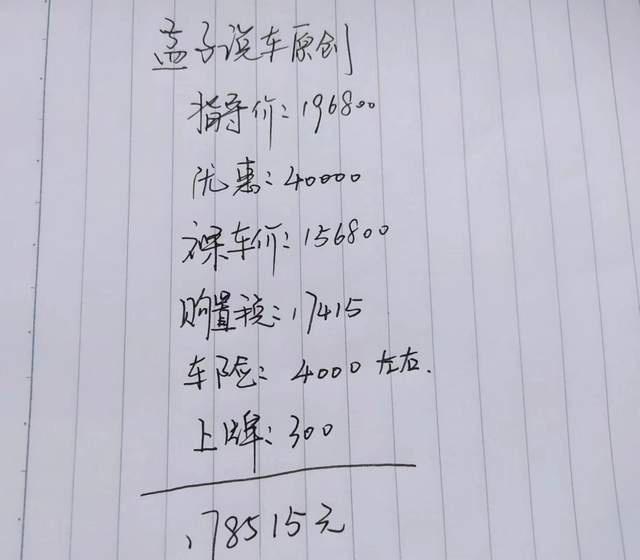 孟子说车原创
指导价:196800
优惠:40000
裸车价:156800
购置税:17415
车险:4000左右.
上牌:300
178515元